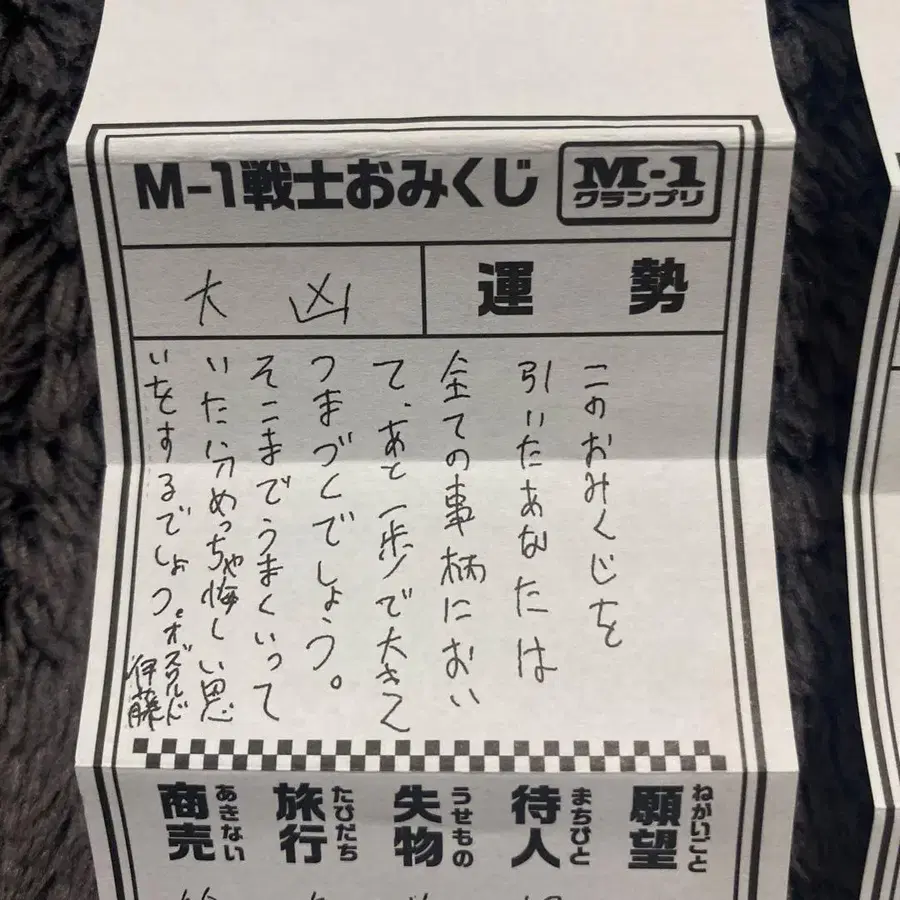 M-1戦士おみくじ
M-1
グランプリ
運勢
大凶
このおみくじを
引いたあなたは
全ての事柄におい
て、あと一歩で大きく
つまづくでしょう。
そこまでうまくいって
いた分めっちゃ悔しい思
いをするでしょう。オズワルド
伊藤
願望
ねがいごと
待人
まちびと
失物
うせもの
旅行
たびだち
商売
あきない